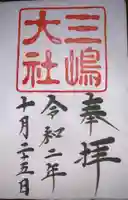 奉拝
三嶋
大社
令和二年
十月二十五日